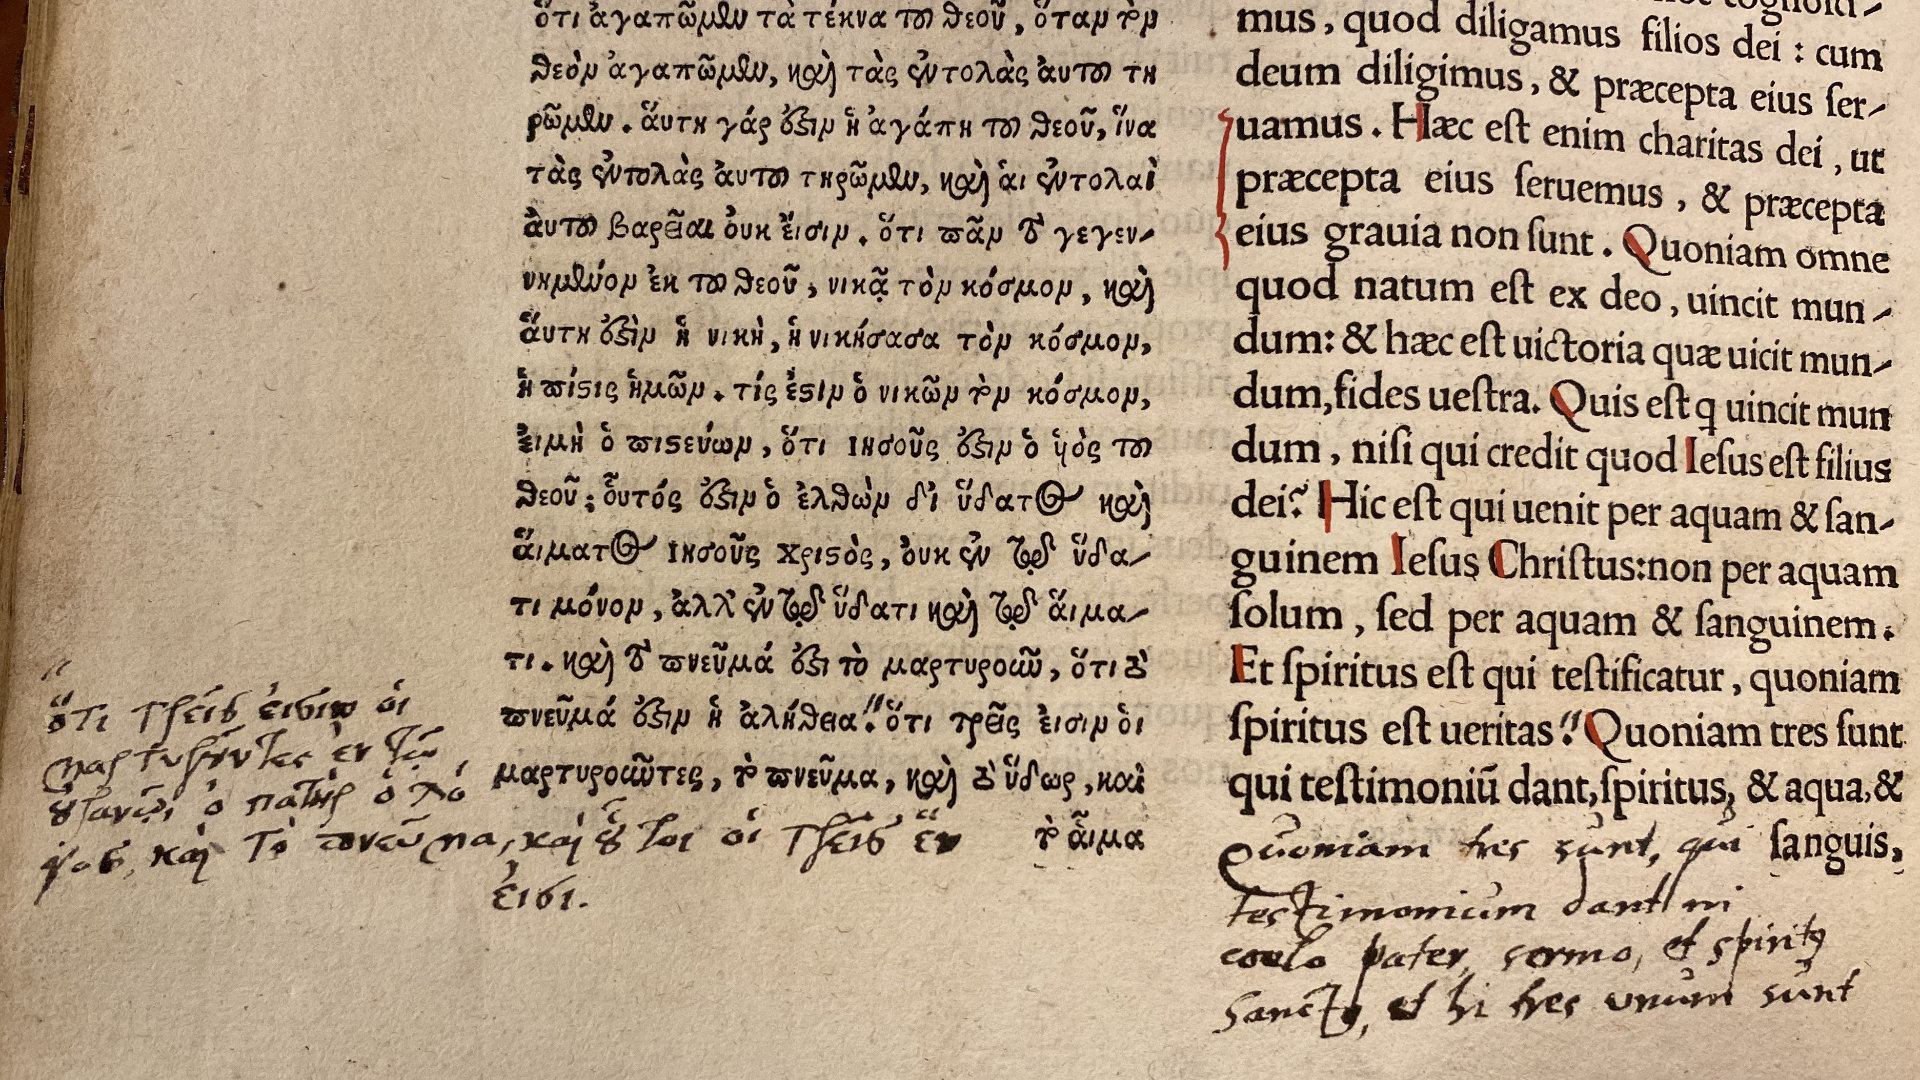 ὅτι ἀγαπῶμεν τὰ τέκνα τοῦ θεοῦ, ὅταν τὸν
θεὸν ἀγαπῶμεν, καὶ τὰς ἐντολὰς ἀυτοῦ τη
ρῶμεν. ἅυτη γάρ ἐστιν ἡ ἀγάπη τοῦ θεοῦ, ἵνα
τὰς ἐντολὰς ἀυτοῦ τηρῶμεν, καὶ ἁι ἐντολαὶ
ἀυτοῦ βαρεῖαι ὀυκ ἔισιν. ὅτι πᾶν τὸ γεγεν-
νημένον ἐκ τοῦ θεοῦ, νικᾷ τὸν κόσμον, καὶ
ἅυτη ἐστὶν ἡ νικὴ, ἡ νικήσασα τὸν κόσμον,
ἡ πίστις ἡμῶν. τίς ἐστιν ὁ νικῶν τὸν κόσμον,
ἐιμὴ ὁ πιστεύων, ὅτι ιησοῦς ἐστιν ὁ ὑιὸς τοῦ
θεοῦ; οὗτός ἐστιν ὁ ἐλθὼν δι ὕδατος καὶ
ἅιματος ιησοῦς χριστὸς, ὀυκ ἐν τῷ ὕδα-
τι μόνον, ἀλλ' ἐν τῷ ὕδατι καὶ τῷ ἅιμα-
τι. καὶ τὸ πνεῦμά ἐστι τὸ μαρτυροῦν, ὅτι τὸ
πνεῦμά ἐστιν ἡ ἀλήθεια.〃ὅτι τρεῖς ἐισιν ὁι
μαρτυροῦντες, τὸ πνεῦμα, καὶ τὸ ὕδωρ, καὶ
τὸ ἅιμα
〃
ὅτι τρεῖς ἐισιν ὁι
μαρτυροῦντες ἐν τῷ
οὐρανῷ, ὁ πατὴρ ὁ λό
γος, καὶ τὸ πνεῦμα, καὶ οὗτοι ὁι τρεῖς ἓν
ἐισι.
mus, quod diligamus filios dei : cum
deum diligimus, & præcepta eius ſer-
uamus. Hæc eſt enim charitas dei, ut
præcepta eius ſeruemus, & præcepta
eius grauia non ſunt. Quoniam omne
quod natum eſt ex deo, uincit mun-
dum: & hæc eſt uictoria quæ uicit mun-
dum, fides ueſtra. Quis eſt q uincit mun
dum, niſi qui credit quod Ieſus eſt filius
dei? Hic eſt qui uenit per aquam & ſan-
guinem Ieſus Chriſtus: non per aquam
ſolum, ſed per aquam & ſanguinem.
Et ſpiritus eſt qui teſtificatur, quoniam
ſpiritus eſt ueritas.〃Quoniam tres ſunt
qui teſtimoniū dant, ſpiritus, & aqua, &
ſanguis,
Quoniam tres sunt, qui
testimonium dant in
coelo pater, sermo, et spiritꝰ
Sanctꝰ, et hi tres unum sunt